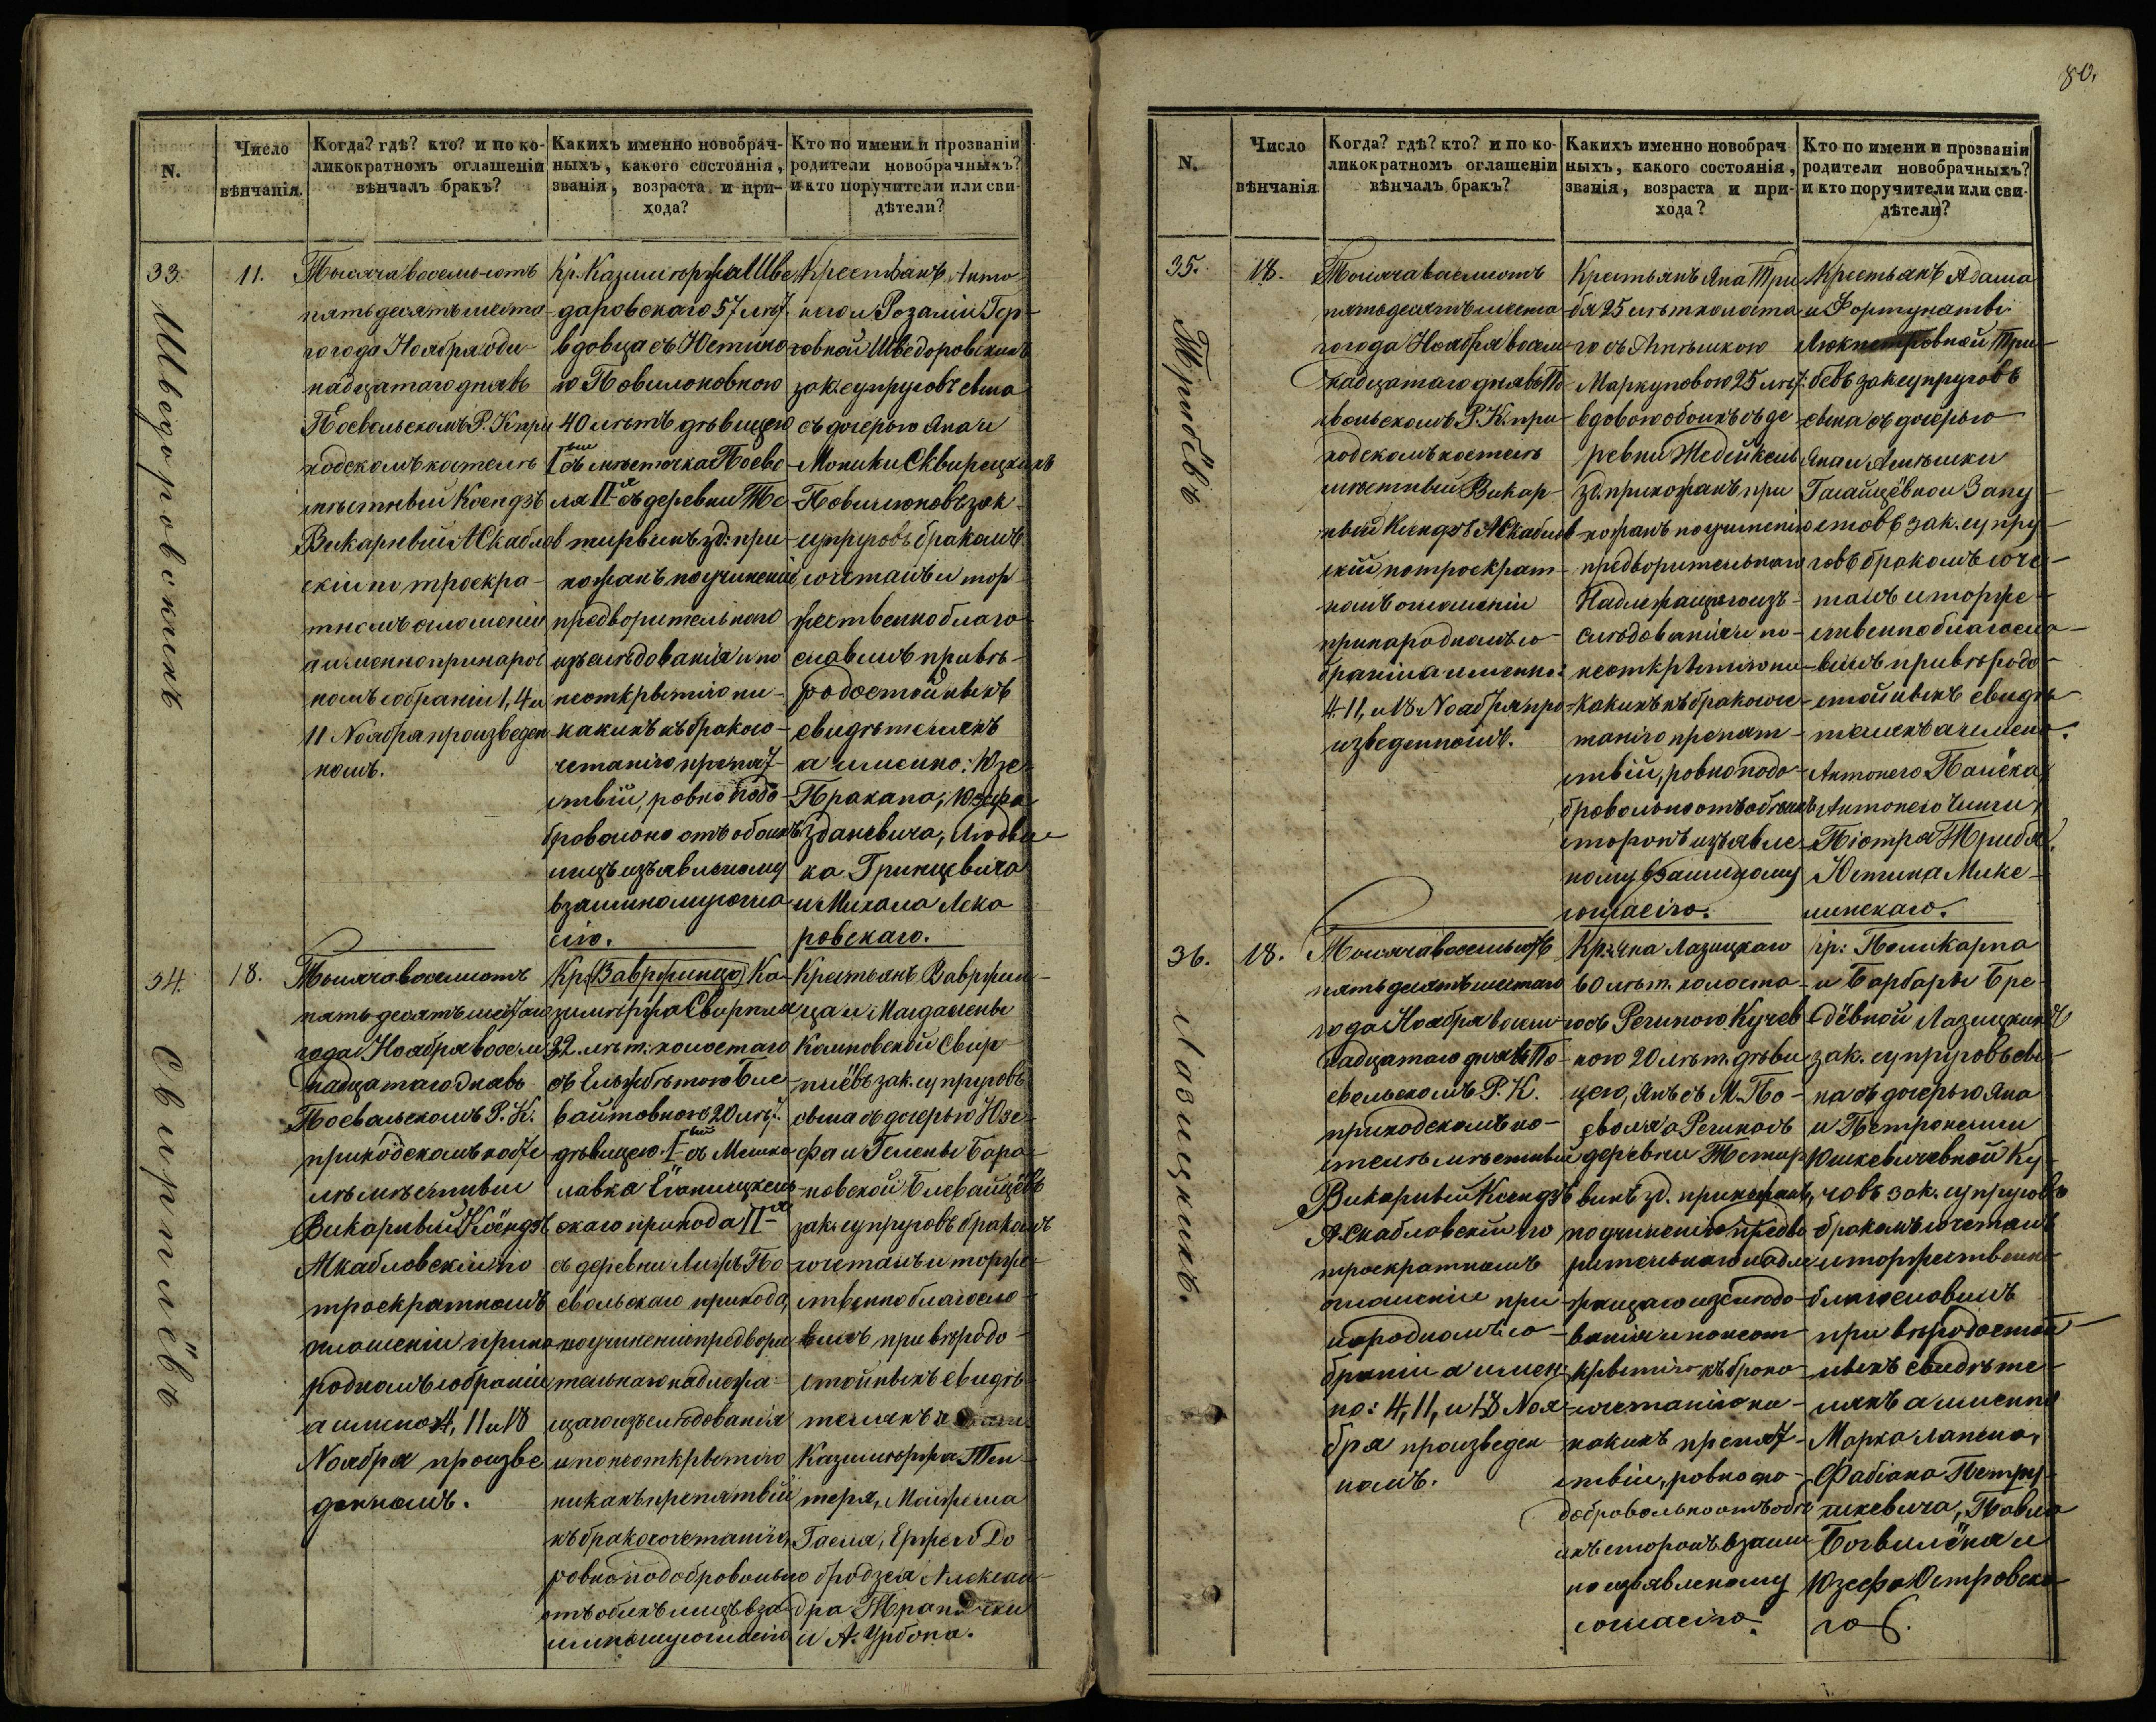 80.
N.
Число
вѣнчанія.
Когда? гдѣ? кто? и по ко-
ликократномъ оглашеніи
вѣнчалъ бракъ?
Какихъ именно новобрач-
ныхъ, какого состоянія,
званія, возраста и при-
хода?
Кто по имени и прозваніи
родители новобрачныхъ?
и кто поручители или сви-
дѣтели?
33.
Шведоровскихъ
11.
Тысяча восемь сотъ
пятьдесятъ шесто
го года Ноября оди-
надцатаго дня въ
Посвольскомъ Р. К. при
ходскомъ костелѣ
мѣстный Ксендзъ
Викарный А Скабло
скій по троекра-
тномъ оглошеніи
а именно при народ
номъ собраніи 1, 4 и
11 Ноября произведен
номъ.
Кр. Казимѣржа Шве
даровскаго 57 лѣт.
вдовца съ Юстино
ю Повилоновною
40 лѣтъ дѣвицею
I вый съ мѣстечка Посво
ля II я съ деревни Те
в тирвихъ зд: при-
хожанъ по учиненіи
предворительного
изслѣдованія и по
неоткрытію ни-
какихъ къ бракосо-
четанію препят-
ствій, ровно подо-
бровольно отъ обоихъ
лицъ изъявленому
взаимному согла-
сію.
Крестьянъ Анто-
него и Розаліи Гер-
говной Шведоровскихъ
зак. супруговъ сына
съ дочерью Яна и
Моники Сквирецкихъ
Повилюновъ зак.
супруговъ бракомъ
сочеталъ и тор
жественно благо-
словилъ при вѣ-
родостойныхъ
свидѣтеляхъ
а именно: Юзе-
Пракапа, Юзефа
Здановича, Людви
ка Гринцевича
и Михала Лека
ровскаго.
34.
Свирплёвъ
18.
Тысяча восемь сотъ
пятьдесятъ шестаго
года Ноября восем
надцатаго дня въ
Посвольскомъ Р. К.
приходскомъ косте
лѣ мѣстный
Викарный Ксендзъ
А Скабловскій по
троекратномъ
оглошеніи при на
родномъ собраніи
а именно 4, 11 и 18
Ноября произве
денномъ.
Кр. (Ваврфинца) Ка-
зимѣржа Свирпля
32. лѣт. холостаго
съ Ельжбѣтою Бле
вайтовною 20 лѣт.
дѣвицею. I вый съ Мешко
лавка Іоанишкель
скаго прихода II я
съ деревни Лижъ По
свольскаго прихода,
по учиненіи предвори
тельнаго надлежа-
щаго изслѣдованія
и по неоткрытію
никакъ препятвій
къ бракосочетанію,
ровно подобровольно
отъ обоихъ лицъ вза
имному согласію
Крестьянъ Ваврфин-
ца и Магдалены
Климовской Свир-
плёвъ зак. супруговъ
сына съ дочерью Юзе-
фа и Гелены Бара-
новской Блевайцёвъ
зак. супруговъ бракомъ
сочеталъ и торже-
ственно благосло-
вилъ при вѣродо-
стойныхъ свидѣ-
теляхъ
Казимѣржа Тен-
теря, Матеуша
Гаеля, Ержего До
бродзея Алексан-
дра
и А. Урбона.
N.
Число
вѣнчанія
Когда? гдѣ? кто? и по ко-
ликократномъ оглашеніи
вѣнчалъ бракъ?
Какихъ именно новобрач
ныхъ, какого состоянія,
званія, возраста и при-
хода?
Кто по имени и прозваніи
родители новобрачныхъ?
и кто поручители или сви-
дѣтели?
35.
Трибёвъ
18.
Тысяча восемь сотъ
пятьдесятъ шеста
го года Ноября восем
надцатаго дня въ По
свольскомъ Р. К. при-
ходскомъ костелѣ
мѣстный Викар-
ный Ксендзъ А Скаблов
скій по троекрат-
номъ оглошеніи
при народномъ со-
браніи а именно:
4. 11, и 18 Ноября про
изведенномъ.
Крестьянъ Яна Три
бя 25 лѣт холоста
го съ Агнѣшкою
Маркуновою 25 лѣт.
вдовою обоихъ съ де
ревни Жедейкель
зд. прихожанъ при
хожанъ по учиненію
предворительнаго
Надлежащаго изъ-
слѣдованія и по-
неоткрытію ни-
какихъ къ бракосоче-
танію препят-
ствій, ровно подо-
бровольно отъ обоихъ
сторонъ изъявле
ному взаимному
согласію.
Крестьянъ Адама
и Фортунаты
Люкнтровной Три-
бевъ зак супруговъ
сына съ дочерью
Яна и Агнѣшки
Гасайцёвной Запу-
стовъ зак. супру-
говъ бракомъ соче-
талъ и торже-
ственно благосло-
вилъ при вѣродо-
стойныхъ свидѣ-
теляхъ а именно.
Антонего Паиёка,
Антонего
Піотра Трибя.
Юстина Микс-
линскаго.
36.
Лазицкихъ.
18.
Тысяча восемь сотъ
пятьдесятъ шестаго
года Ноября восем-
надцатаго дня въ По-
свольскомъ Р. К.
приходскомъ ко-
стелѣ мѣстный
Викарный Ксендзъ
А. Скабловскій по
троекратномъ
оглошеніи при
народномъ со-
браніи а имен-
но: 4, 11, и 18 Ноя-
бря произведен
номъ.
Кр: Яна Лазицкаго
60 лѣт. холоста-
го съ Региною Кучев
ною 20 лѣт. дѣви
цею, Янъ съ М. По-
своля а Регина съ
деревни Тетир
викъ зд. прихожанъ,
по учиненію предво
рительнаго надле
жащаго изслѣдо-
ванія и понеот-
крытію къ брако-
сочетанію ни-
какихъ препят-
ствіи, ровно по-
добровольно отъ обо
ихъ сторонъ взаим
но изъявленому
согласію.
Кр: Поликарпа
и Барбары Бре-
дёвной Лазицкихъ
зак. супруговъ сы-
на съ дочерью Яна
и Петронелли
Юшкевичевной Ку-
човъ зак. супруговъ
бракомъ сочеталъ
и торжественно
благословилъ
при вѣродостой-
ныхъ свидѣте-
ляхъ а именно
Марка Лапена,
Фабіана Петру-
шкевича, Павла
Богвилёна и
Юзефа Островска
го.